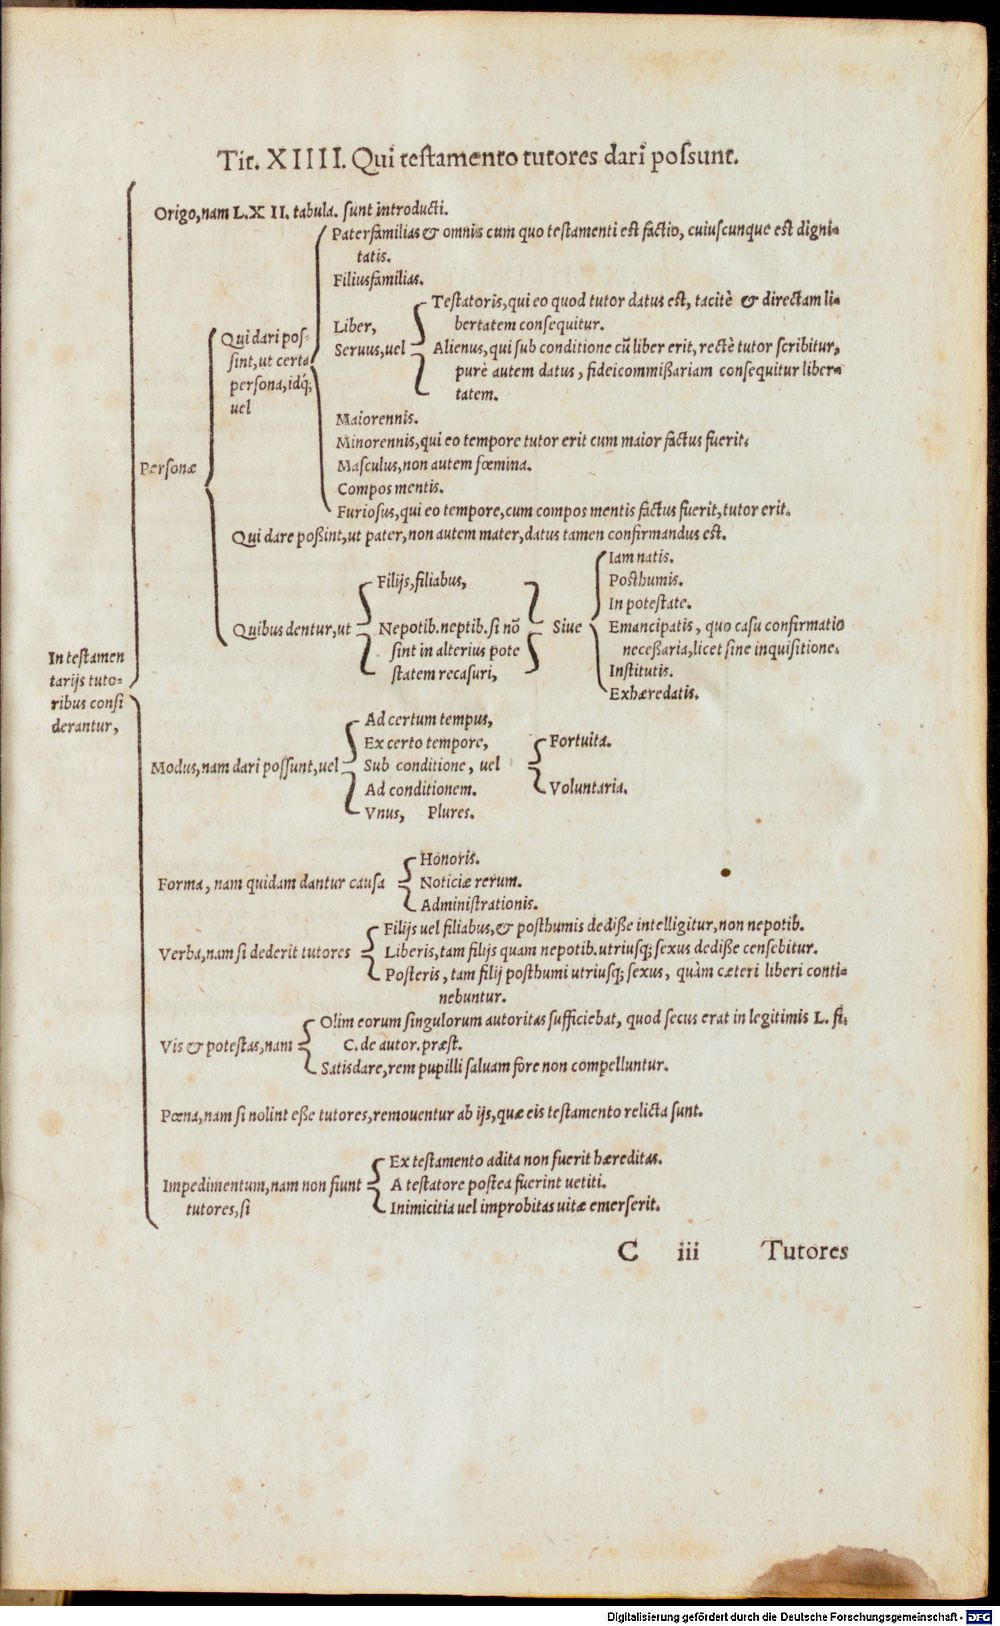 Tit. XIIII. Qui testamento tutores dari possunt.
Origo, nam L. X II. tabula. sunt introducti.
Paterfamilias & omnis cum quo testamenti est factio, cuiuscunque est digni-
tatis.
Filiusfamilias.
Testatoris, qui eo quod tutor datus est, tacitè & directam li-
Liber,
bertatem consequitur.
Qui dari pos-
Seruus, uel
Alienus, qui sub conditione cũ liber erit, rectè tutor scribitur,
sint, ut certa
purè autem datus, fideicommißariam consequitur liber-
persona, idq́;
tatem.
uel
Maiorennis.
Minorennis, qui eo tempore tutor erit cum maior factus fuerit.
Personæ
Masculus, non autem fœmina.
Compos mentis.
Furiosus, qui eo tempore, cum compos mentis factus fuerit, tutor erit.
Qui dare poßint, ut pater, non autem mater, datus tamen confirmandus est.
Iam natis.
Filijs, filiabus,
Posthumis.
In potestate.
Quibus dentur, ut
Nepotib. neptib. si nõ
Siue
Emancipatis, quo casu confirmatio
sint in alterius pote
neceßaria, licet sine inquisitione.
In testamen
statem recasuri,
Institutis.
tarijs tuto-
Exhæredatis.
ribus consi
derantur,
Ad certum tempus,
Ex certo tempore,
Fortuita.
Modus, nam dari possunt, uel
Sub conditione, uel
Ad conditionem.
Voluntaria.
Vnus, Plures.
Honoris.
Forma, nam quidam dantur causa
Noticiæ rerum.
Administrationis.
Filijs uel filiabus, & posthumis dediße intelligitur, non nepotib.
Verba, nam si dederit tutores
Liberis, tam filijs quam nepotib. utriusq; sexus dediße censebitur.
Posteris, tam filij posthumi utriusq; sexus, quàm cæteri liberi conti-
nebuntur.
Olim eorum singulorum autoritas sufficiebat, quod secus erat in legitimis L. fi.
Vis & potestas, nam
C. de autor. præst.
Satisdare, rem pupilli saluam fore non compelluntur.
Pœna, nam si nolint eße tutores, remouentur ab ijs, quæ eis testamento relicta sunt.
Ex testamento adita non fuerit hæreditas.
Impedimentum, nam non fiunt
A testatore postea fuerint uetiti.
tutores, si
Inimicitia uel improbitas uitæ emerserit.
C iii Tutores
Digitalisierung gefördert durch die Deutsche Forschungsgemeinschaft - DFG